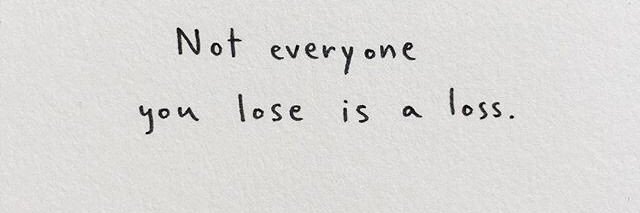 Not everyone
you lose is a loss.